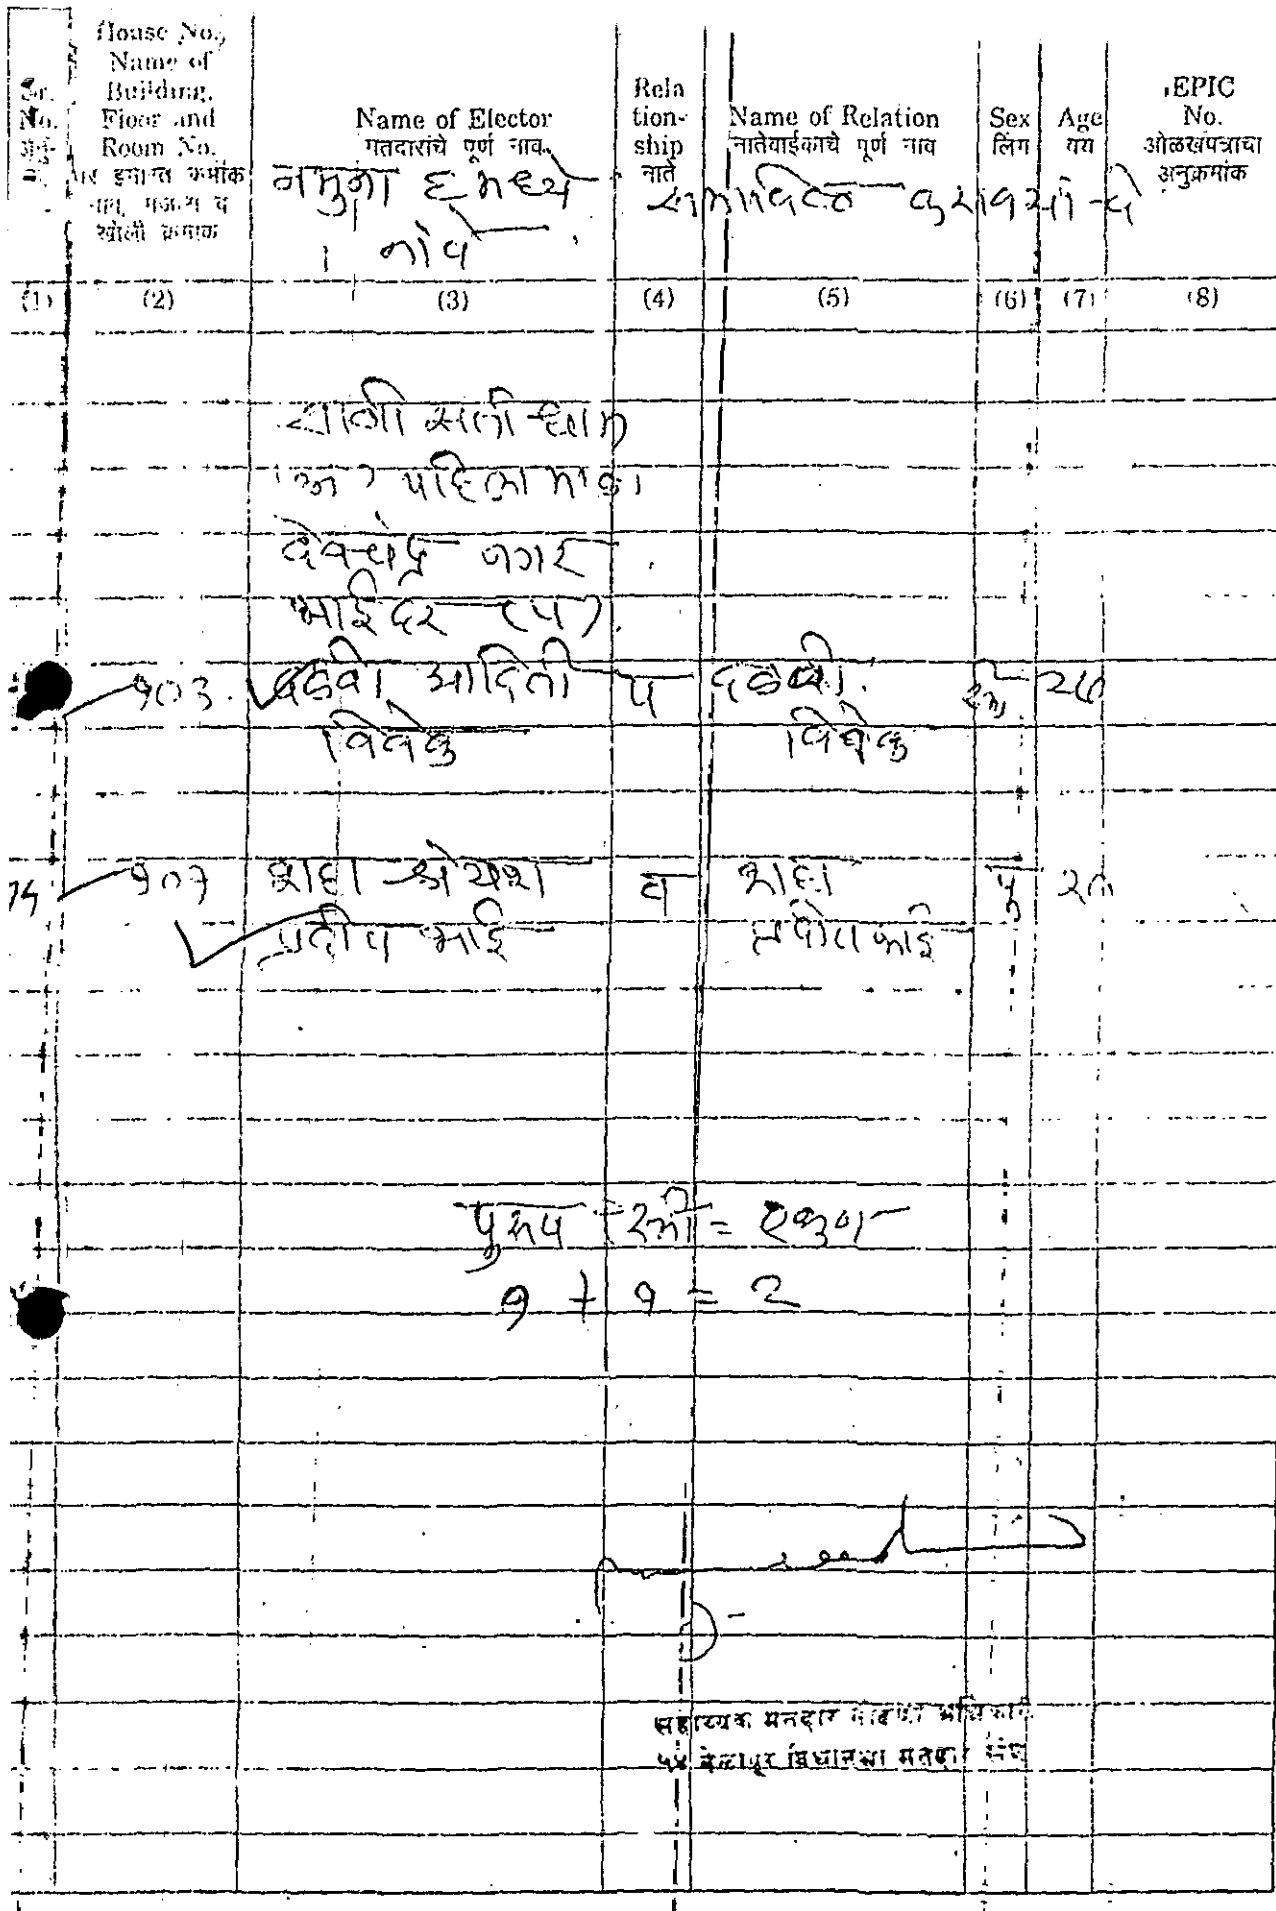 House No.,
Name of
Building,
Floor and
Room No.
घर इमारत क्रमांक
खोली क्रमांक
Sr.
No.
Name of Elector
मतदारांचे पूर्ण नाव
Rela
tion-
ship
नाते
Name of Relation
नातेवाईकाचे पूर्ण नाव
Sex
लिंग
Age
वय
EPIC
No.
ओळखपत्राचा
अनुक्रमांक
नमुना ६ मध्ये समाविष्ट करावयाचे
नांवे
(1) (2) (3) (4) (5) (6) (7) (8)
राणी सती धाम
पहिला माळा
देवचंद नगर
भाईंदर (प)
१०३ दळवी आदिती प दळवी स्त्री
विवेक विवेक
शहा श्रेयश व शहा पु
प्रदीप भाई
पुरुष स्त्री = एकुण
१ + १ = २
सहाय्यक मतदार नोंदणी अधिकारी
बेलापूर विधानसभा मतदार संघ